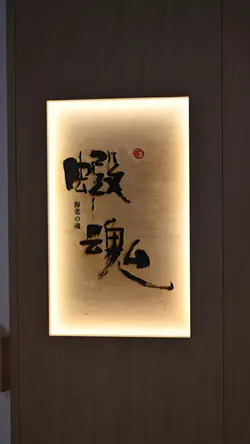 蝦魂
海老の魂